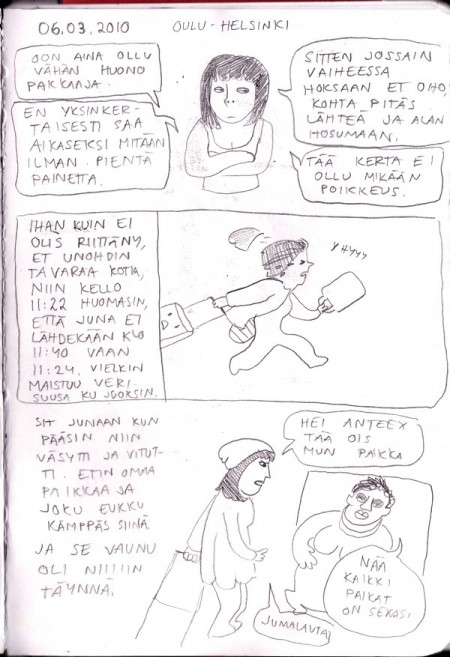 06.03.2010
OULU - HELSINKI
OON AINA OLLU
VÄHÄN HUONO
PAKKAAJA.
EN YKSINKER-
TAISESTI SAA
AIKASEKSI MITÄÄN
ILMAN PIENTÄ
PAINETTA.
SITTEN JOSSAIN
VAIHEESSA
HOKSAAN ET OHO,
KOHTA PITÄS
LÄHTEÄ JA ALAN
HOSUMAAN.
TÄÄ KERTA EI
OLLU MIKÄÄN
POIKKEUS.
IHAN KUIN EI
OLIS RIITTÄNY,
ET UNOHDIN
TAVARAA KOTIA,
NIIN KELLO
11:22 HUOMASIN,
ETTÄ JUNA EI
LÄHDEKÄÄN KLO
11:40 VAAN
11:24. VIELKIN
MAISTUU VERI
SUUSSA KU JUOKSIN.
YHYYY
SIT JUNAAN KUN
PÄÄSIN NIIN
VÄSYTTI JA VITUT-
TI. ETIN OMAA
PAIKKAA JA
JOKU EUKKU
KÄMPPÄS SIINÄ
JA SE VAUNU
OLI NIIIIIN
TÄYNNÄ.
HEI ANTEEX
TÄÄ OIS
MUN PAIKKA
NÄÄ
KAIKKI
PAIKAT
ON SEKASI
JUMALAUTA